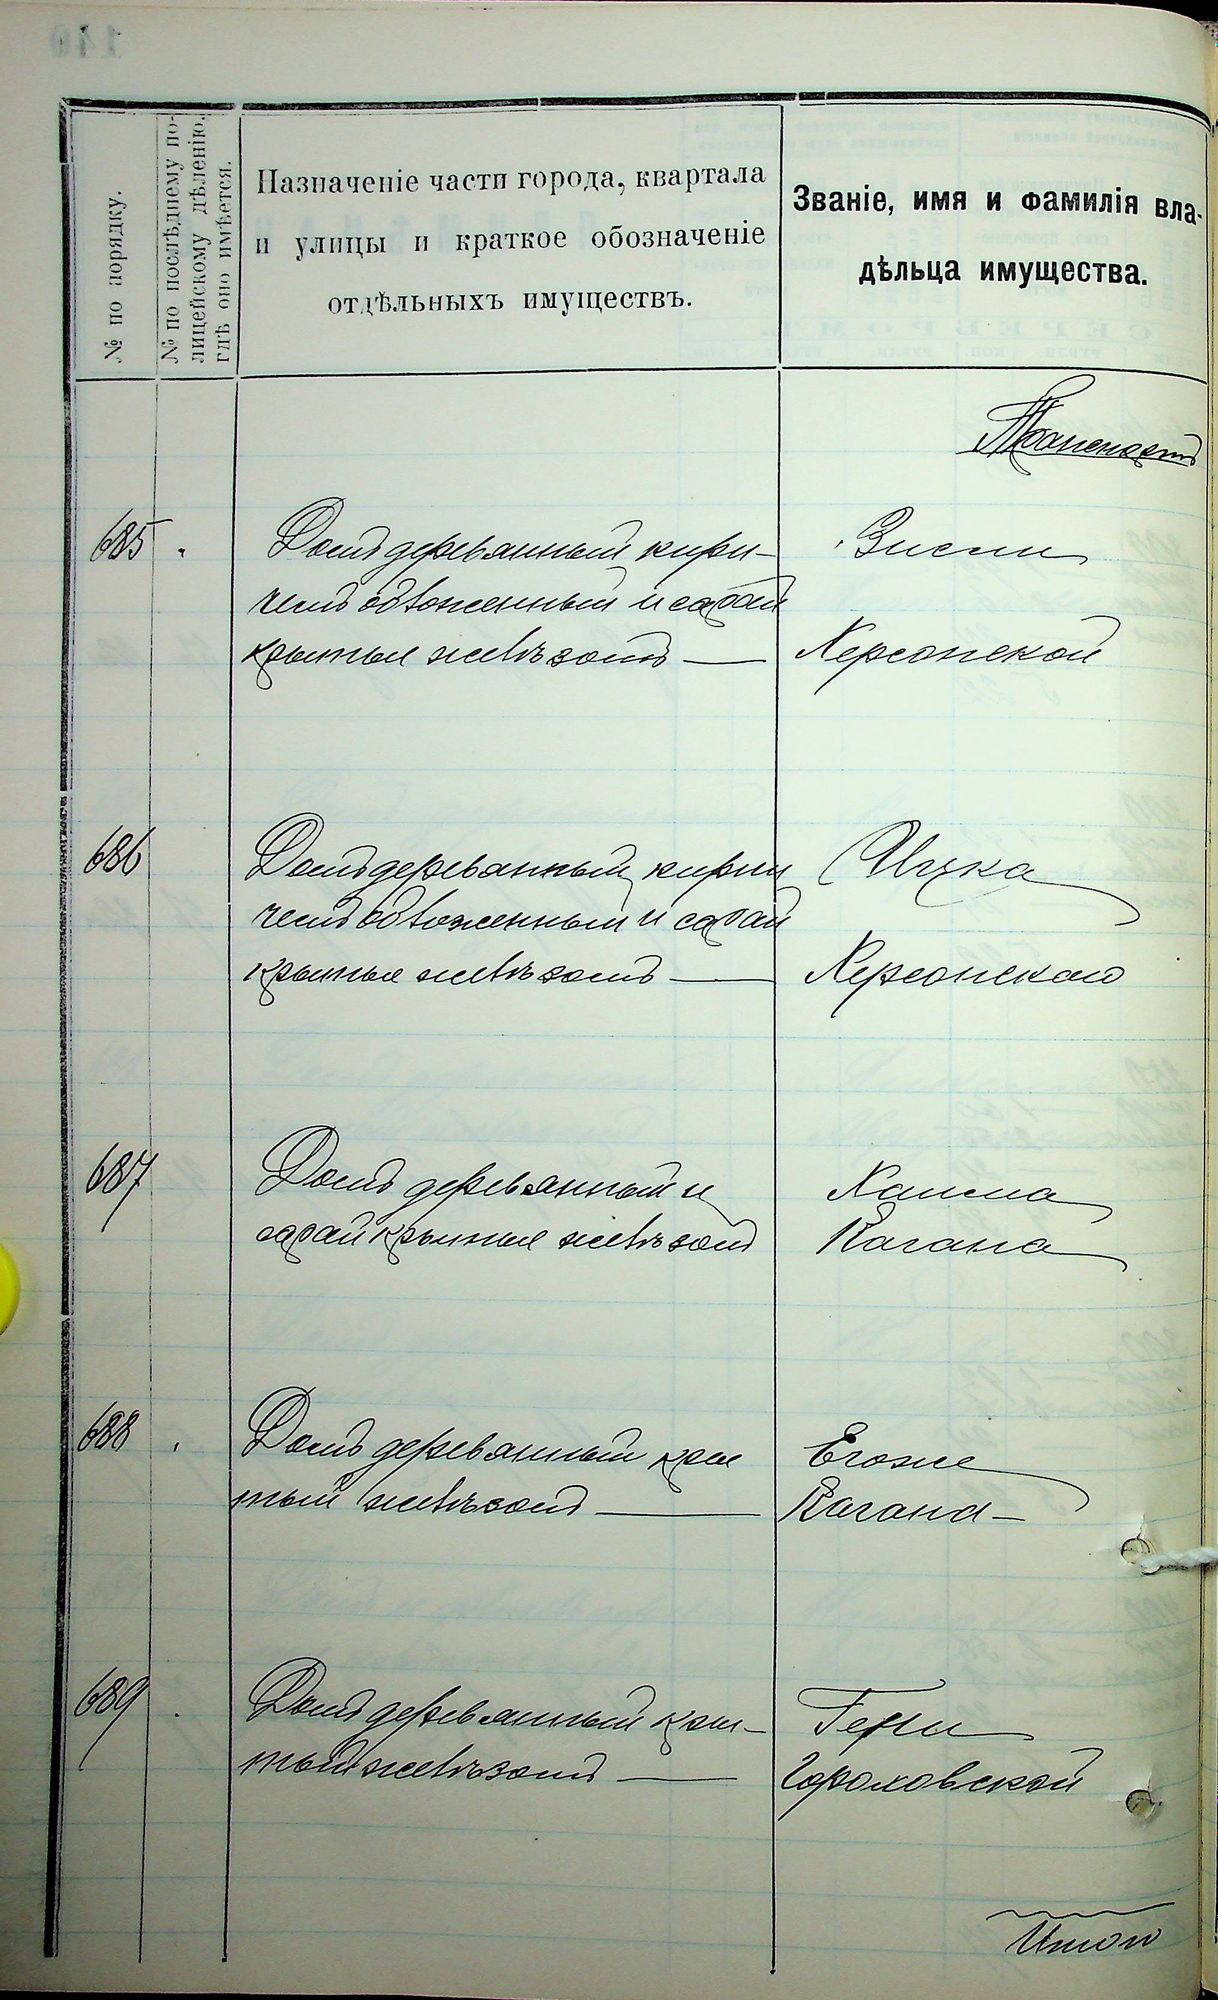 № по порядку.
№ по послѣднему по-
лицейскому дѣленію,
гдѣ оно имѣется.
Назначеніе части города, квартала
и улицы и краткое обозначеніе
отдѣльныхъ имуществъ.
Званіе, имя и фамилія вла-
дѣльца имущества.
Транспортъ
685
Домъ деревянный кирпи-
чемъ обложенный и сарай
крытые желѣзомъ —
Зисли
Херсонской
686
Домъ деревянный кирпи
чемъ обложенный и сарай
крытые желѣзомъ —
Ицка
Херсонскаго
687
Домъ деревянный и
сарай крытые желѣзомъ
Хаима
Кагана
688
Домъ деревянный кры
тый желѣзомъ —
Кагана —
689
Домъ деревянный кры-
тый желѣзомъ —
Гороховской
Итого